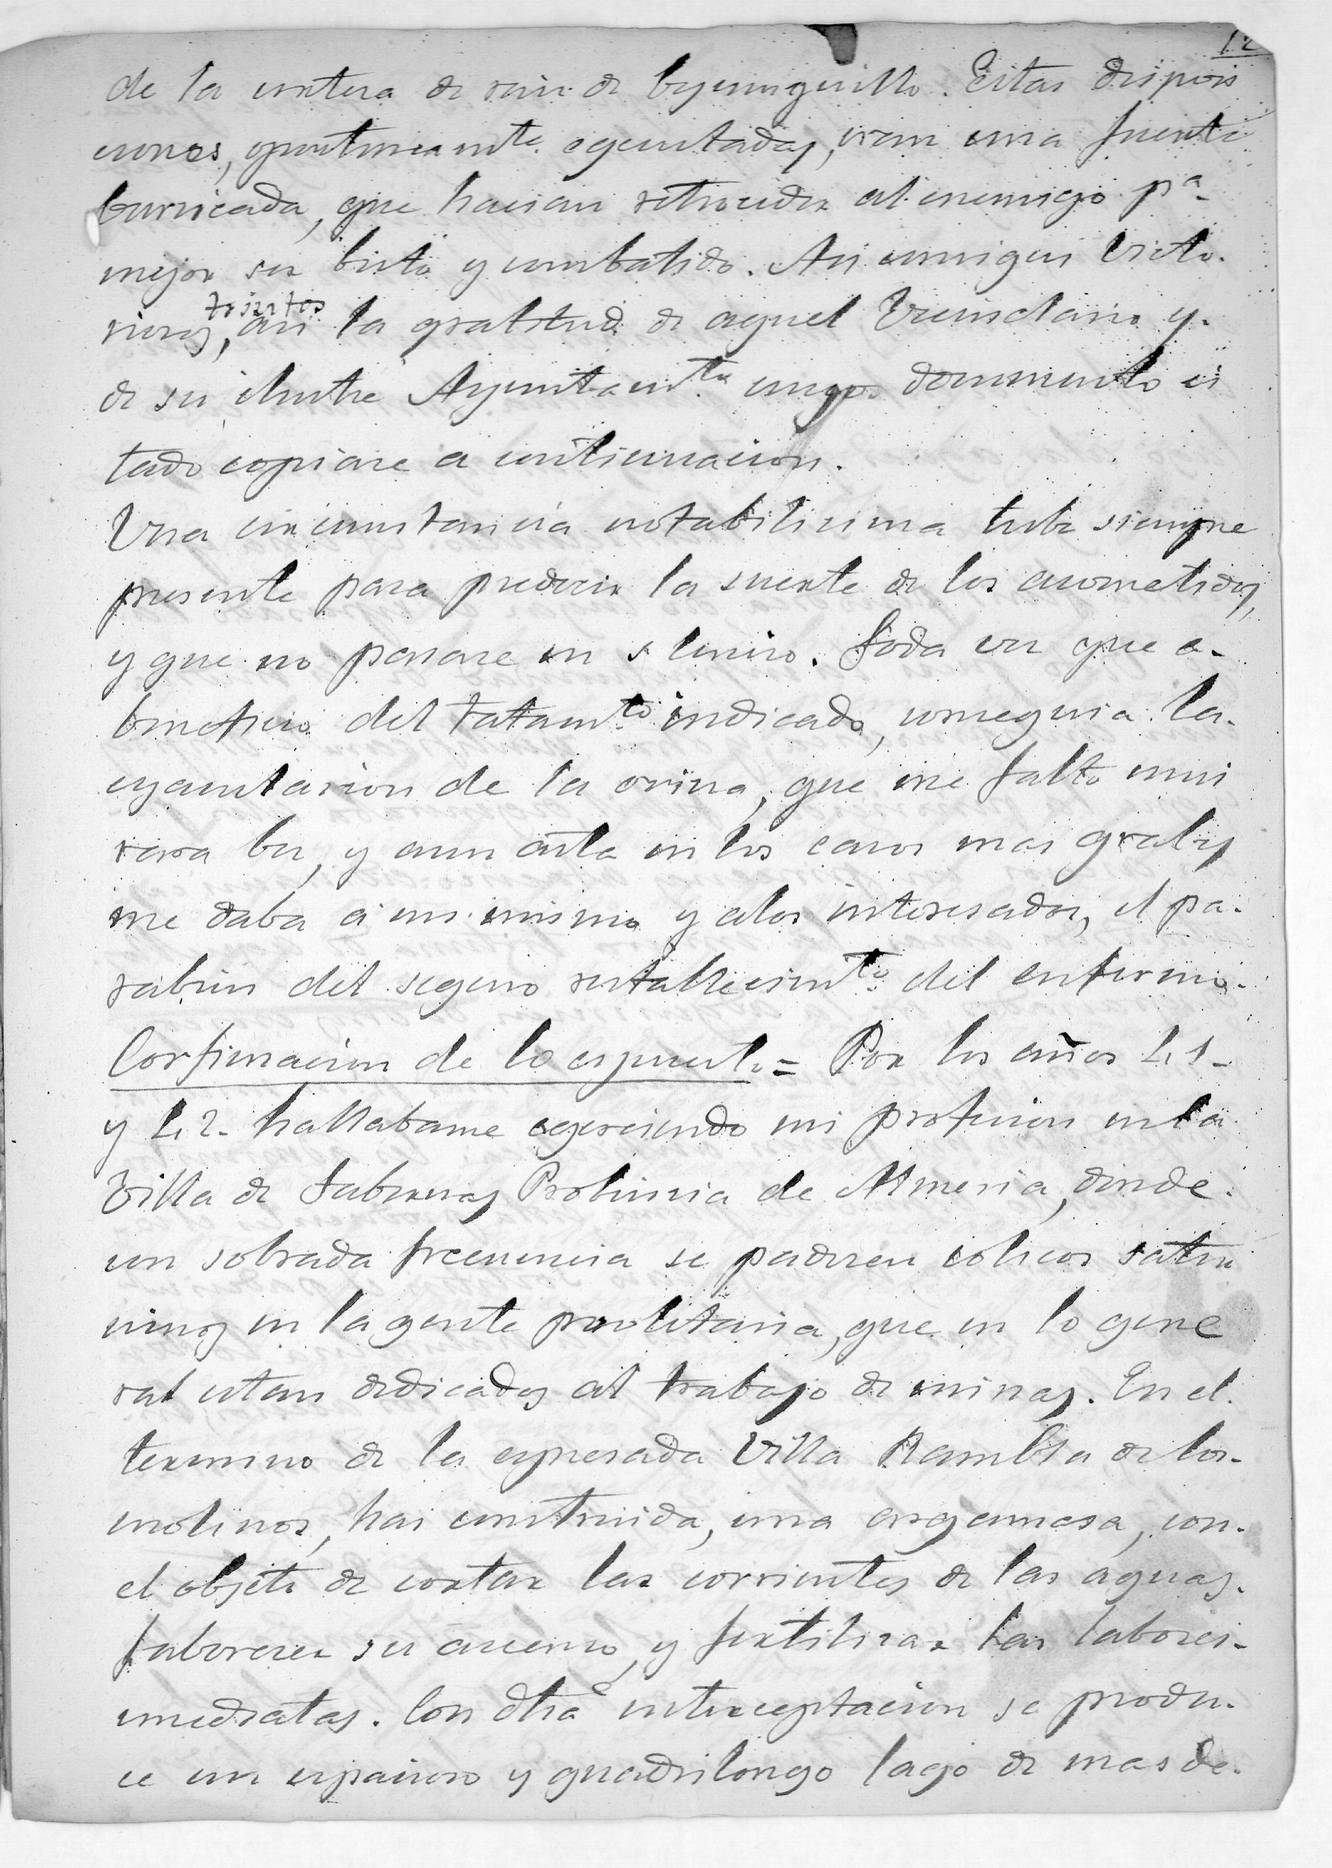 12
de la corteza de raiz de byengenillo. Estas disposi
ciones, oportunamte. egecutadas, eran una fuerte
burricada, que hacian retroceder al enemigo pa.
mejor ser bisto y combatido. Asi consegui victo-
riosos triunfos, asi la gratitud de aquel Vecindario y
de su ilustre Ayuntamto. cuyo documento ci
tado copiare a continuacion.
Una circunstancia notabilisima tube siempre
presente para predecir la suerte de los acometidos,
y que no pasare en silencio. Toda vez que a-
beneficio del tratamto. indicado, conseguia la-
eyaculacion de la orina, que me falto mui
rara bez, y aun asta en los casos mas grabes
me daba a mi mismo y alos interesados, el pa-
rabien del seguro restablecimto. del enfermo.
Corfirmacion de lo espuesto = Por los años 41-
y 42- hallabame egerciendo mi profesion en la
Villa de Tabernas Probincia de Almeria, donde-
con sobrada frecuencia se padecen colicos satur
ninos en la gente proletaria, que en lo gene
ral estan dedicados al trabajo de minas. En el
termino de la espresada Villa Rambla de los-
molinos, hai construida, una argamasa, con-
el objeto de cortar las corrientes de las aguas-
faborecer su acenso, y fertilizar las labores-
imediatas. Con dha interceptacion se produ-
ce un espacioso y quadrilongo lago de mas de-